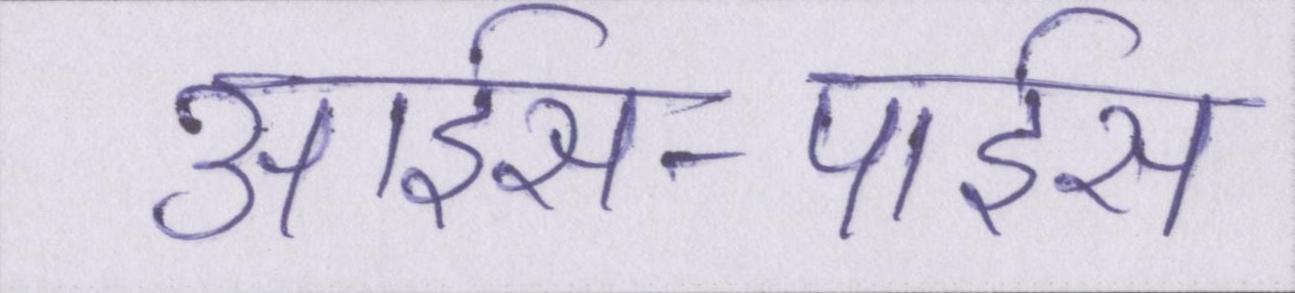 आईस-पाईस